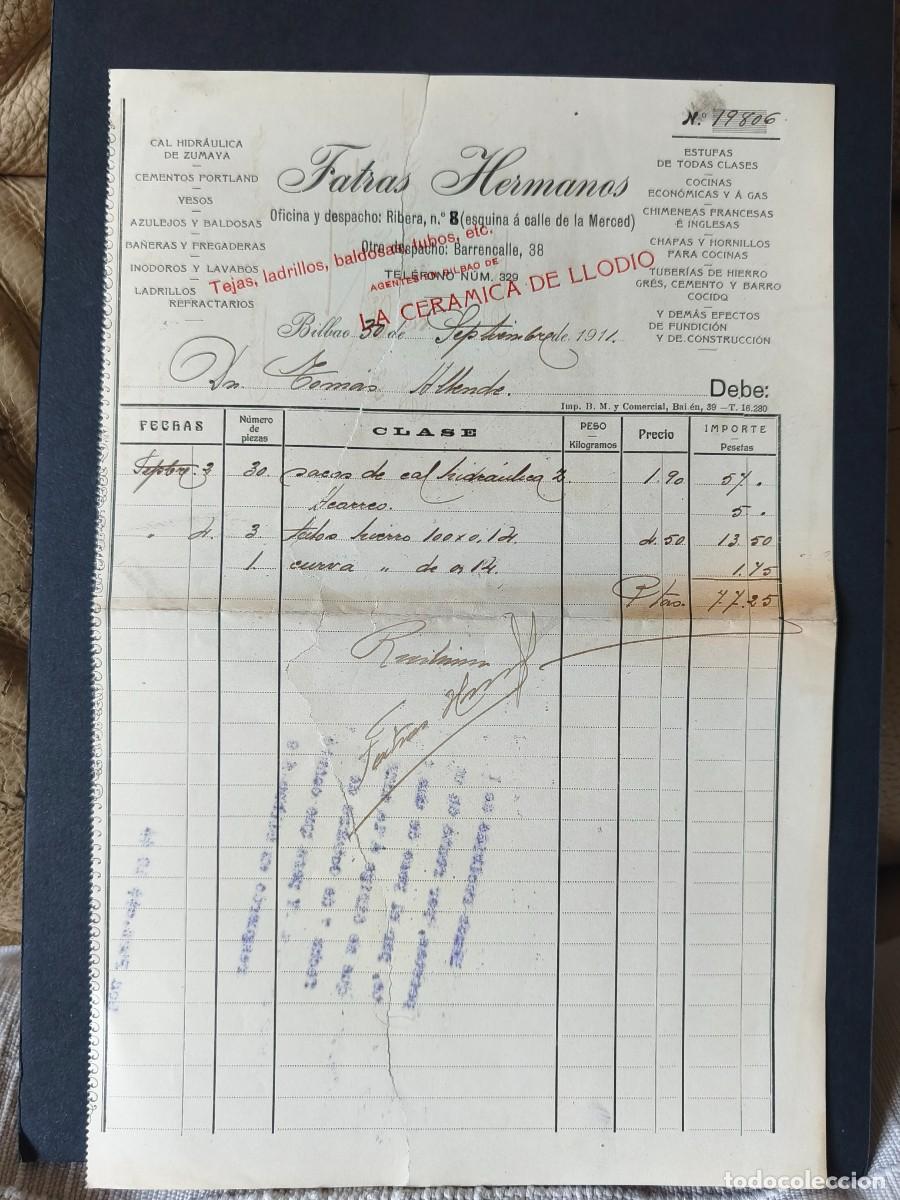 N.º 19806
CAL HIDRÁULICA
DE ZUMAYA
CEMENTOS PORTLAND
YESOS
AZULEJOS Y BALDOSAS
BAÑERAS Y FREGADERAS
INODOROS Y LAVABOS
LADRILLOS
REFRACTARIOS
Fatras Hermanos
Oficina y despacho: Ribera, n.º 8 (esquina á calle de la Merced)
Otro despacho: Barrencalle, 38
TELÉFONO NÚM. 329
Tejas, ladrillos, baldosas, tubos, etc.
AGENTES EN BILBAO DE
LA CERAMICA DE LLODIO
ESTUFAS
DE TODAS CLASES
COCINAS
ECONÓMICAS Y Á GAS
CHIMENEAS FRANCESAS
É INGLESAS
CHAPAS Y HORNILLOS
PARA COCINAS
TUBERÍAS DE HIERRO
GRÉS, CEMENTO Y BARRO
COCIDO
Y DEMÁS EFECTOS
DE FUNDICIÓN
Y DE CONSTRUCCIÓN
Bilbao 30 de Septiembre de 1911.
Dn. Tomás Allende. Debe:
Imp. B. M. y Comercial, Bailén, 39 —T. 16.280
FECHAS Número de piezas CLASE PESO Kilogramos Precio IMPORTE Pesetas
Septbre. 2 30. sacos de cal hidráulica Z. 1.90 57 .
Acarreo. 5 .
" 4. 3. tubos hierro 100x0,14 4.50 13.50
1. curva " de 0,14. 1.75
Ptas. 77.25
Recibimos
Fatras Herm
todocoleccion